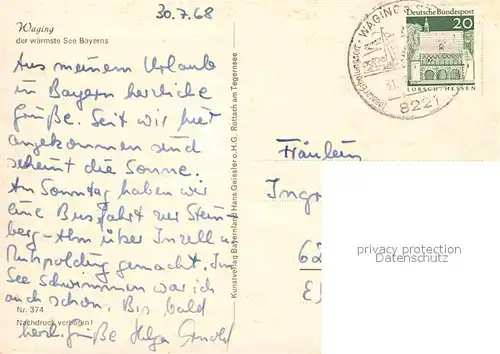 30.7.68
Waging
der wärmste See Bayerns
Aus meinem Urlaube
in Bayern herzliche
Grüße. Seit wir hier
angekommen sind
scheint die Sonne.
Am Sonntag haben wir
eine Busfahrt zur Stein-
berg-Alm über Inzell u.
Ruhpolding gemacht. Im
See schwimmen war ich
auch schon. Bis bald
herzl. Grüße Helga Arnold
Nr. 374
Nachdruck verboten!
Kunstverlag Bayernland Hans Geissler o.H.G. Rottach am Tegernsee
WAGING
8221
Deutsche Bundespost
20
LORSCH/HESSEN
Fräulein
privacy protection
www.ansichtskarten-center.de